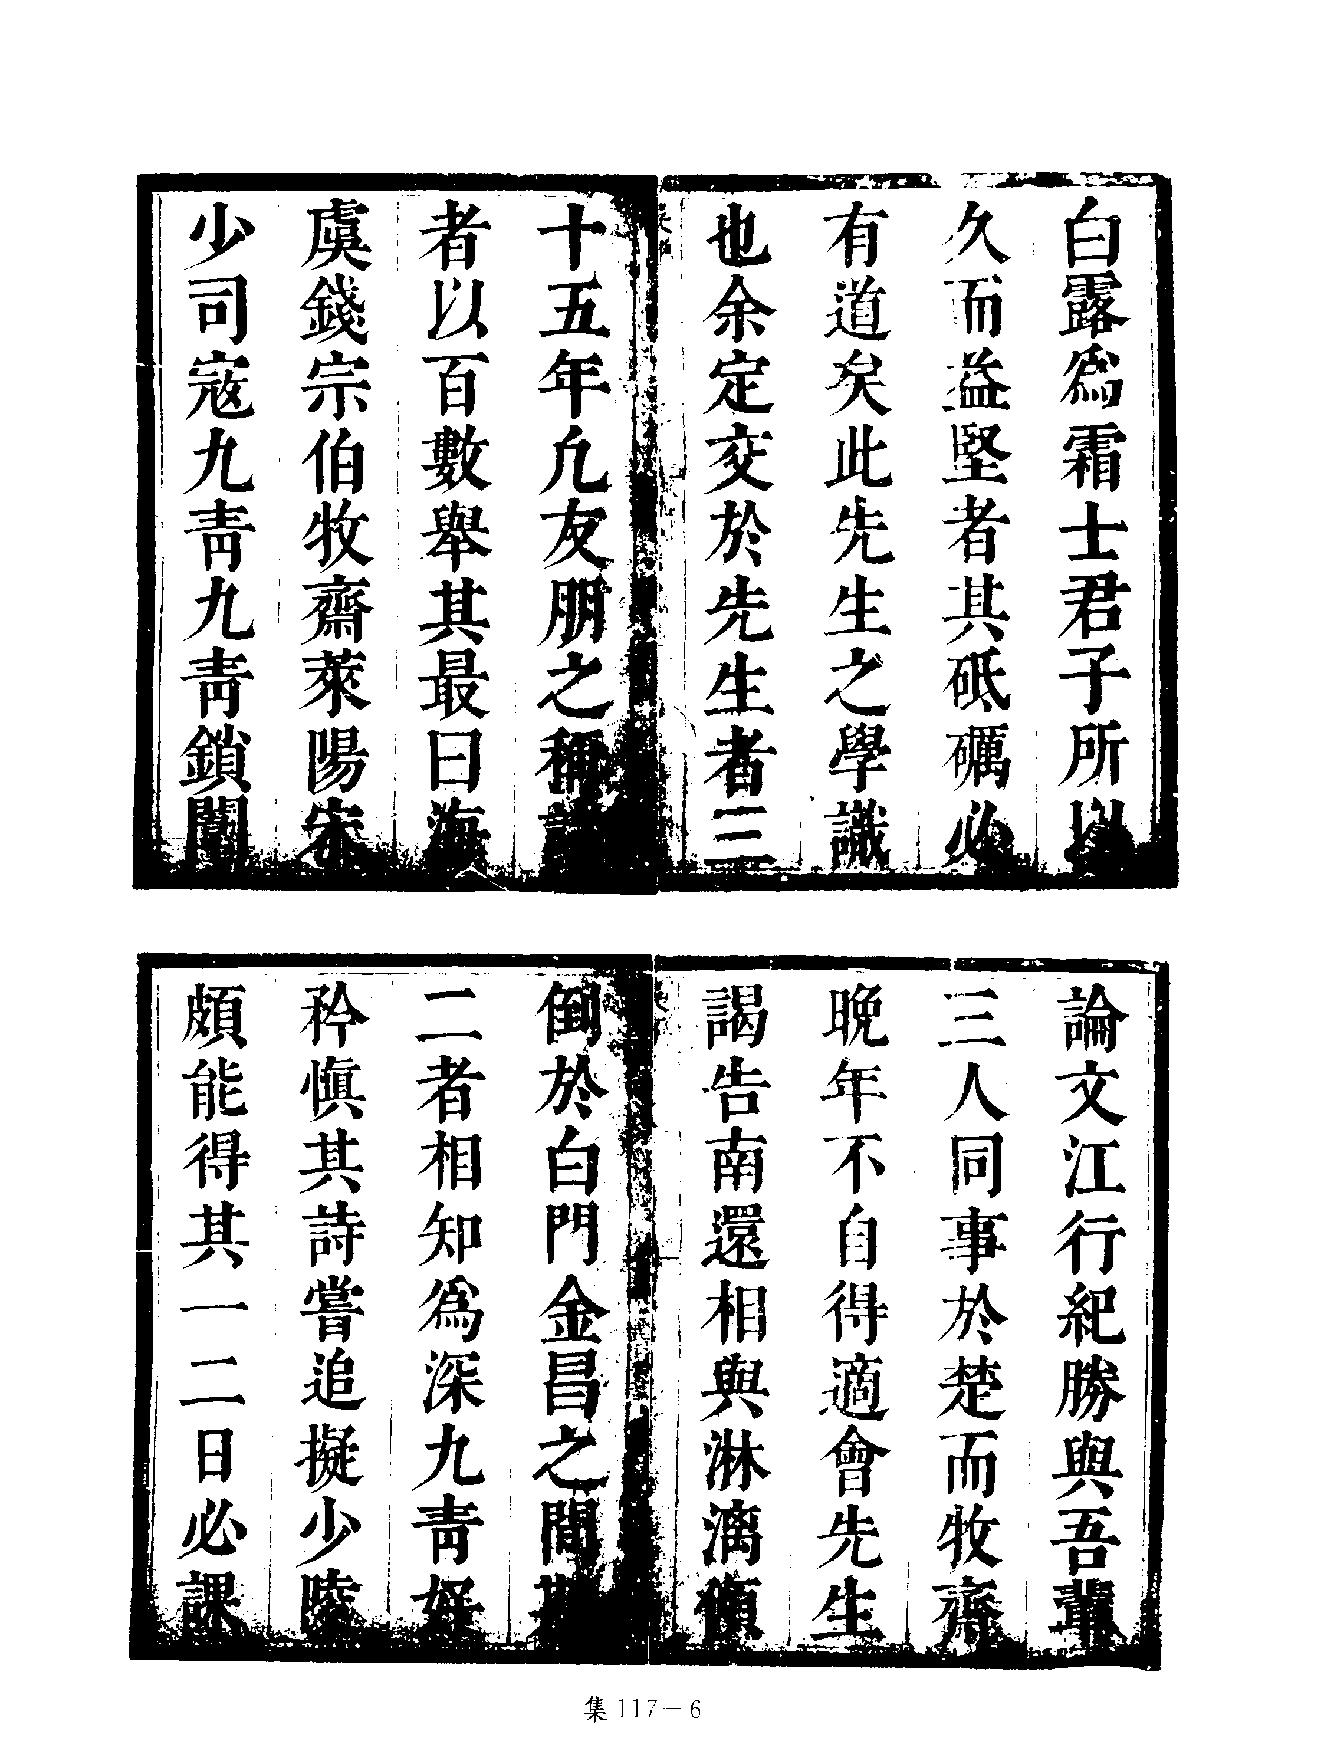 白露爲霜士君子所以
久而益堅者其砥礪必
有道矣此先生之學識
也余定交於先生者三
十五年凢友朋之稱詩
者以百數舉其最曰海
虞錢宗伯牧齋萊陽宋
少司寇九靑九靑鎖闈
論文江行紀勝與吾輩
三人同事於楚而牧齋
晚年不自得適會先生
謁告南還相與淋漓傾
倒於白門金昌之間斯
二者相知爲深九靑好
矜愼其詩嘗追擬少陵
頗能得其一二日必課
集 117－6